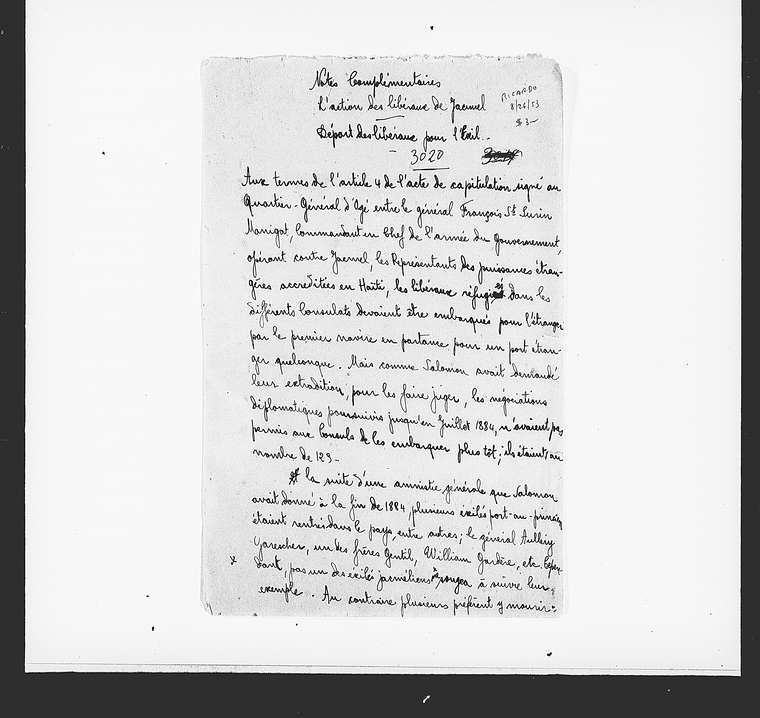 Notes Complémentaires
L'action des libéraux de Jacmel
Départ des libéraux pour l'Exil.
RICARDO
8/26/53
$3-
3020
Aux termes de l'article 4 de l'acte de capitulation signé au
Quartier-Général d'Ogé entre le général François St Surin
Manigat, Commandant en Chef de l'armée du Gouvernement,
opérant contre Jacmel, les Représentants des puissances étran-
gères accréditées en Haïti, les libéraux réfugiés dans les
différents Consulats devaient être embarqués pour l'étranger
par le premier navire en partance pour un port étran-
ger quelconque. Mais comme Salomon avait demandé
leur extradition, pour les faire juger, les négociations
diplomatiques poursuivis jusqu'en Juillet 1884, n'avaient pas
permis aux Consuls de les embarquer plus tôt; ils étaient au
nombre de 123-
A la suite d'une amnistie générale que Salomon
avait donné à la fin de 1884, plusieurs exilés port-au-princiens
étaient rentrés dans le pays, entre autres; le général
Garescher, un des frères Gentil, William Gardère, etc. Cepen-
x dant, pas un des exilés jacméliens ne songea à suivre leur
exemple. Au contraire plusieurs préfèrent y mourir.